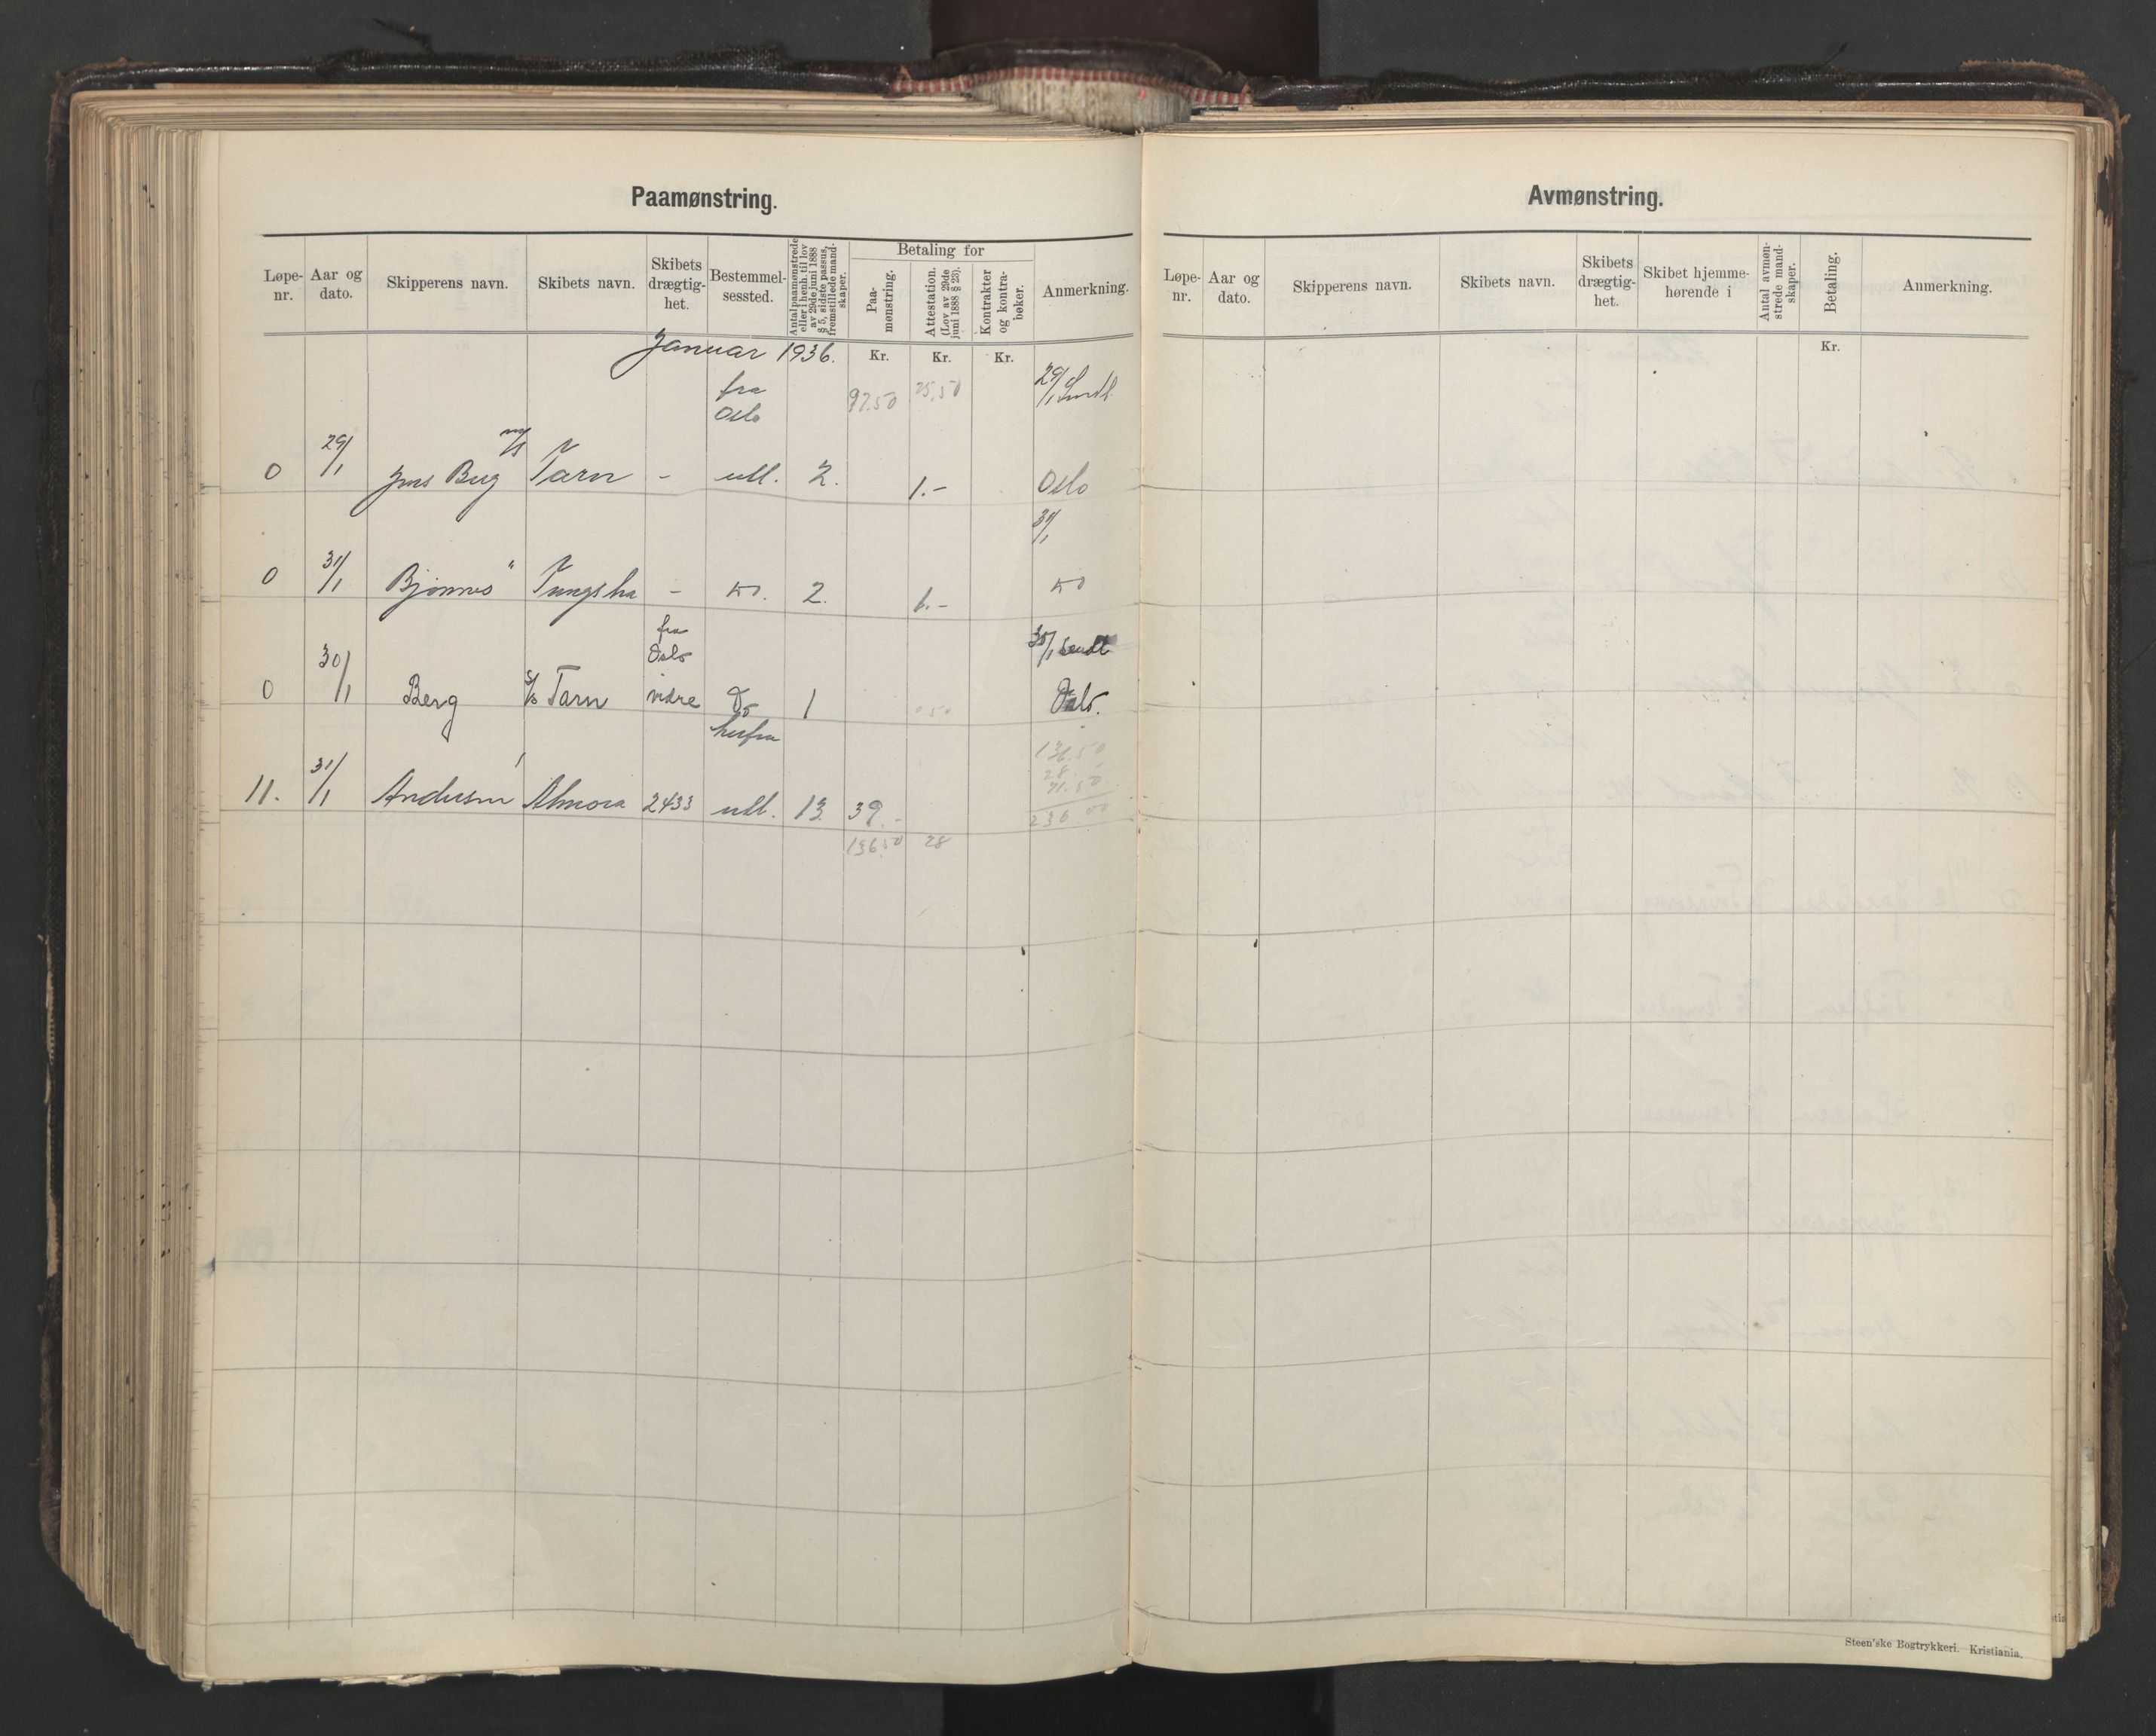 Paamønstring.
Løpe-nr. Aar og dato. Skipperens navn. Skibets navn. Skibets drægtig-het. Bestemmel-sessted. Antal paamønstrede eller i henh. til lov av 29de juni 1888 § 5, sidste passus, fremstillede mand-skaper. Betaling for Paa-mønstring. Attestation. (Lov av 29de juni 1888 § 23). Kontrakter og kontra-bøker. Anmerkning.
Januar 1936. Kr. Kr. Kr.
fra Oslo 97.50 25,50 29/1 Sendt
0 29/1 Jens Berg m/s Tarn - utl. 2. 1.- Oslo
31/1
0 31/1 Bjønnes " Tungsha - do. 2. 1.- do
fra Oslo 30/1 sendt
0 30/1 Berg S/s Tarn vidre Do 1 0 50 Oslo.
herfra 136.50
28.-
71.50
11. 31/1 Andersen Almora 2433 utl. 13. 39.- 236 00
136 50 28
Avmønstring.
Løpe-nr. Aar og dato. Skipperens navn. Skibets navn. Skibets drægtig-het. Skibet hjemme-hørende i Antal avmøn-strede mand-skaper. Betaling. Anmerkning.
Kr.
Steen'ske Bogtrykkeri. Kristiania.